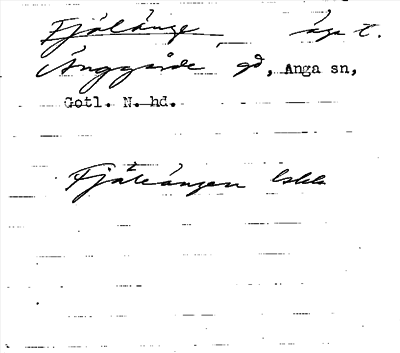 Fjälänge, äga t.
Änggårde gd, Anga sn,
Gotl. N. hd.
Fjäleängen